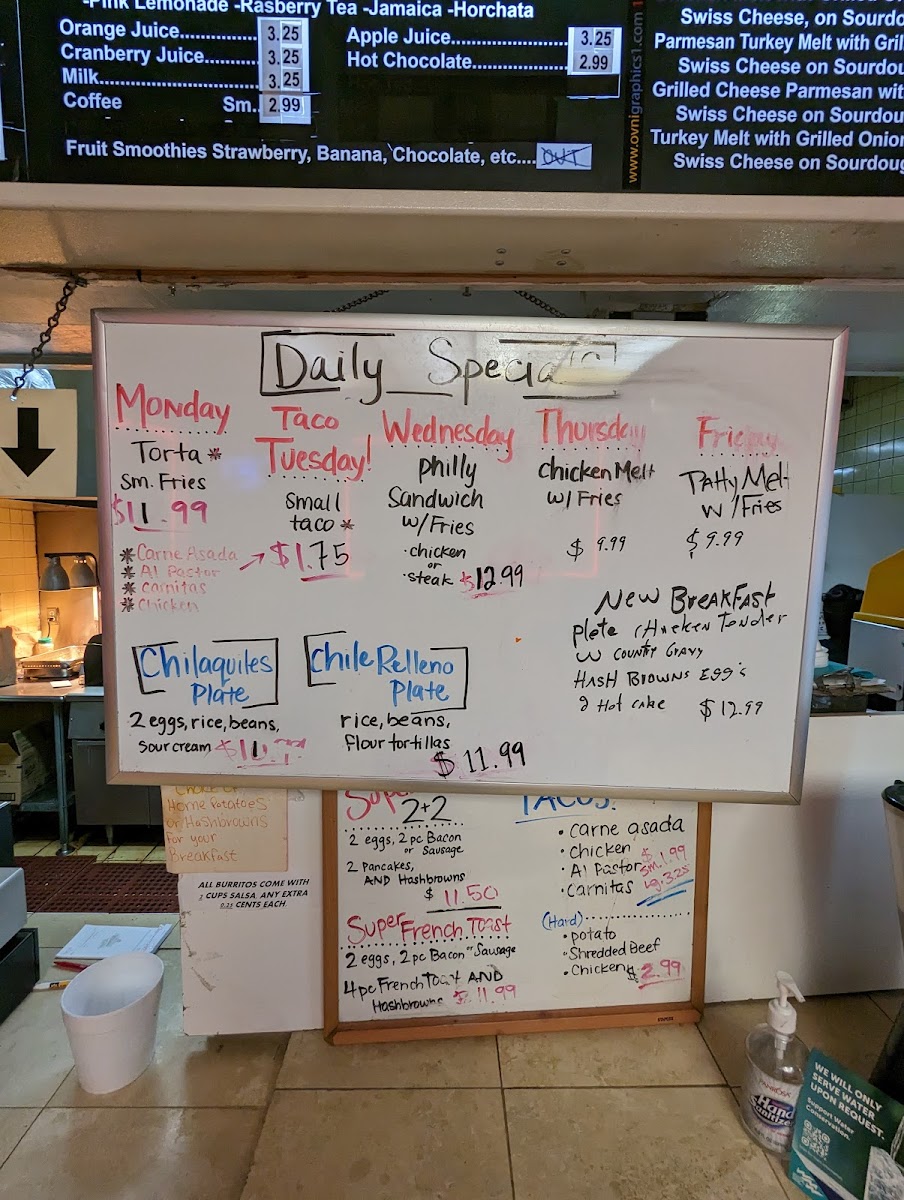 -Pink Lemonade -Rasberry Tea -Jamaica -Horchata
Orange Juice 3.25
Cranberry Juice 3.25
Milk 3.25
Coffee Sm. 2.99
Apple Juice 3.25
Hot Chocolate 2.99
Fruit Smoothies Strawberry, Banana, Chocolate, etc.... OUT
www.ovnigraphics1.com
Swiss Cheese, on
Parmesan Turkey Melt with
Swiss Cheese on
Grilled Cheese Parmesan
Swiss Cheese on
Turkey Melt with Grilled
Swiss Cheese on
Daily Specials
Monday
Torta *
Sm. Fries
$11.99
* Carne Asada
* Al Pastor
* Carnitas
* Chicken
Taco
Tuesday!
Small
taco *
$1.75
Wednesday
Philly
Sandwich
w/Fries
· chicken
or
· steak $12.99
Thursday
Chicken Melt
w/ Fries
$ 9.99
Friday
Patty Melt
w/Fries
$9.99
New BreakFast
plete chicken Tender
w country Gravy
Hash Browns Egg's
2 Hot cake $12.99
Chilaquiles
Plate
2 eggs, rice, beans,
sour cream
Chile Relleno
Plate
rice, beans,
flour tortillas
$11.99
Choice of
Home Potatoes
or Hashbrowns
For your
Breakfast
ALL BURRITOS COME WITH
2 CUPS SALSA. ANY EXTRA
0.25 CENTS EACH.
Super
2+2
2 eggs, 2 pc Bacon
or Sausage
2 Pancakes,
AND Hashbrowns
$ 11.50
Super French Toast
2 eggs, 2 pc Bacon or Sausage
4 pc French Toast AND
Hashbrowns $11.99
TACOS!
• carne asada
• Chicken
• Al Pastor
• Carnitas
$
sm. 1.99
lg. 3.25
(Hard)
• potato
• Shredded Beef
• Chicken $2.99
Hand
Sanitizer
WE WILL ONLY
SERVE WATER
UPON REQUEST.
Support Water
Conservation.